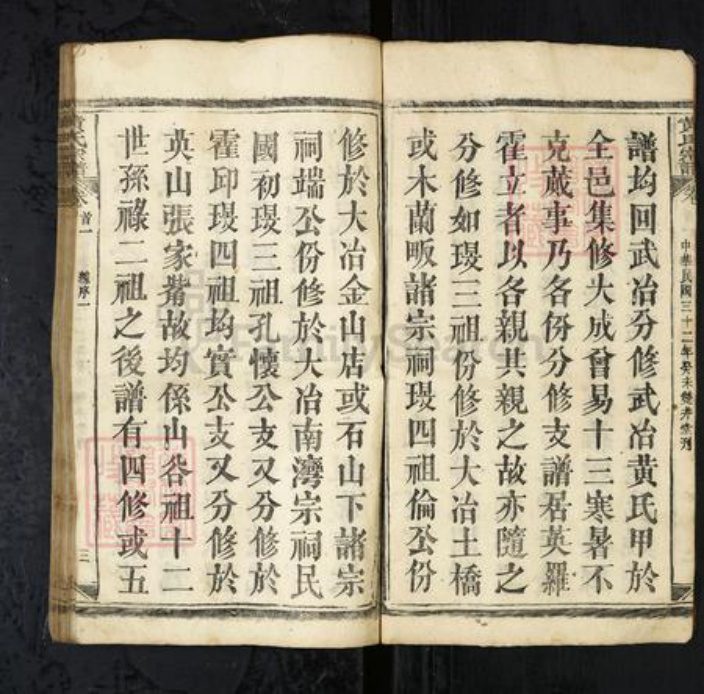 譜均回武冶分修武冶黃氏甲於
全邑集修大成曾易十三寒暑不
克蕆事乃各份分修支譜居英羅
霍立者以各親其親之故亦隨之
分修如瑗三祖份修於大冶土橋
或木蘭畈諸宗祠瑗四祖倫公份
修於大冶金山店或石山下諸宗
祠端公份修於大冶南灣宗祠民
國初瑗三祖孔懷公支又分修於
霍邱瑗四祖均實公支又分修於
英山張家嘴故均係山谷祖十二
世孫祿二祖之後譜有四修或五
中華民國三十二年癸未
黃氏宗譜
卷首一
三
FamilySearch